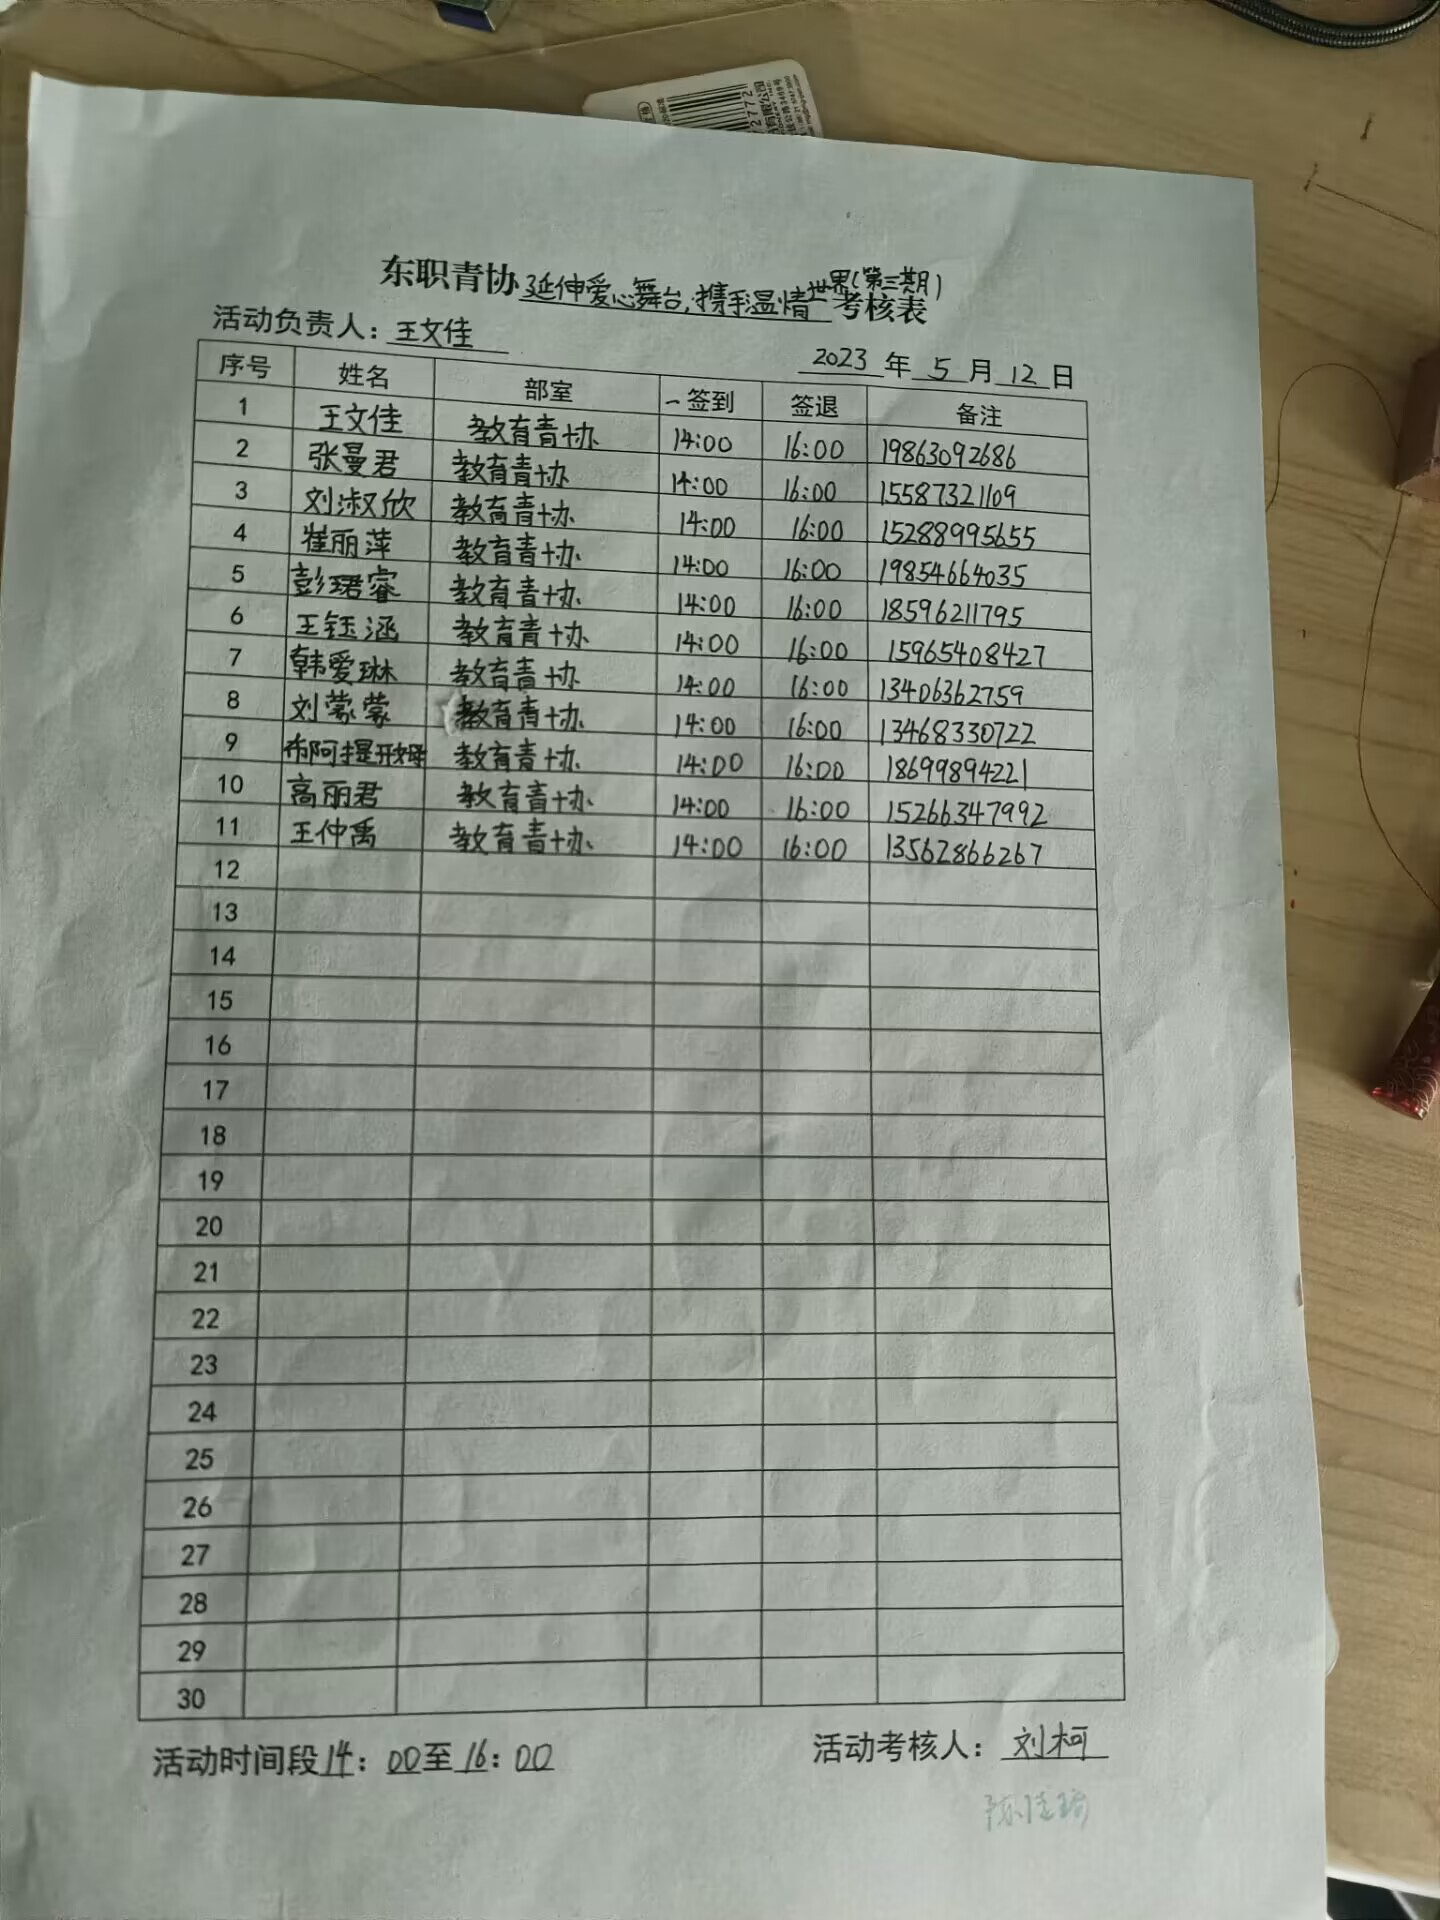 东职青协延伸爱心舞台,携手温情世界(第三期)考核表
活动负责人:王文佳
2023年5月12日
序号 姓名 部室 签到 签退 备注
1 王文佳 教育青协 14:00 16:00 19863092686
2 张曼君 教育青协 14:00 16:00 15587321109
3 刘淑欣 教育青协 14:00 16:00 15288995655
4 崔丽萍 教育青协 14:00 16:00 19854664035
5 彭珺睿 教育青协 14:00 16:00 18596211795
6 王钰涵 教育青协 14:00 16:00 15965408427
7 韩爱琳 教育青协 14:00 16:00 13406362759
8 刘蒙蒙 教育青协 14:00 16:00 13468330722
9 布阿提开姆 教育青协 14:00 16:00 18699894221
10 高丽君 教育青协 14:00 16:00 15266347992
11 王仲禹 教育青协 14:00 16:00 13562866267
12
13
14
15
16
17
18
19
20
21
22
23
24
25
26
27
28
29
30
活动时间段14:00至16:00
活动考核人:刘柯